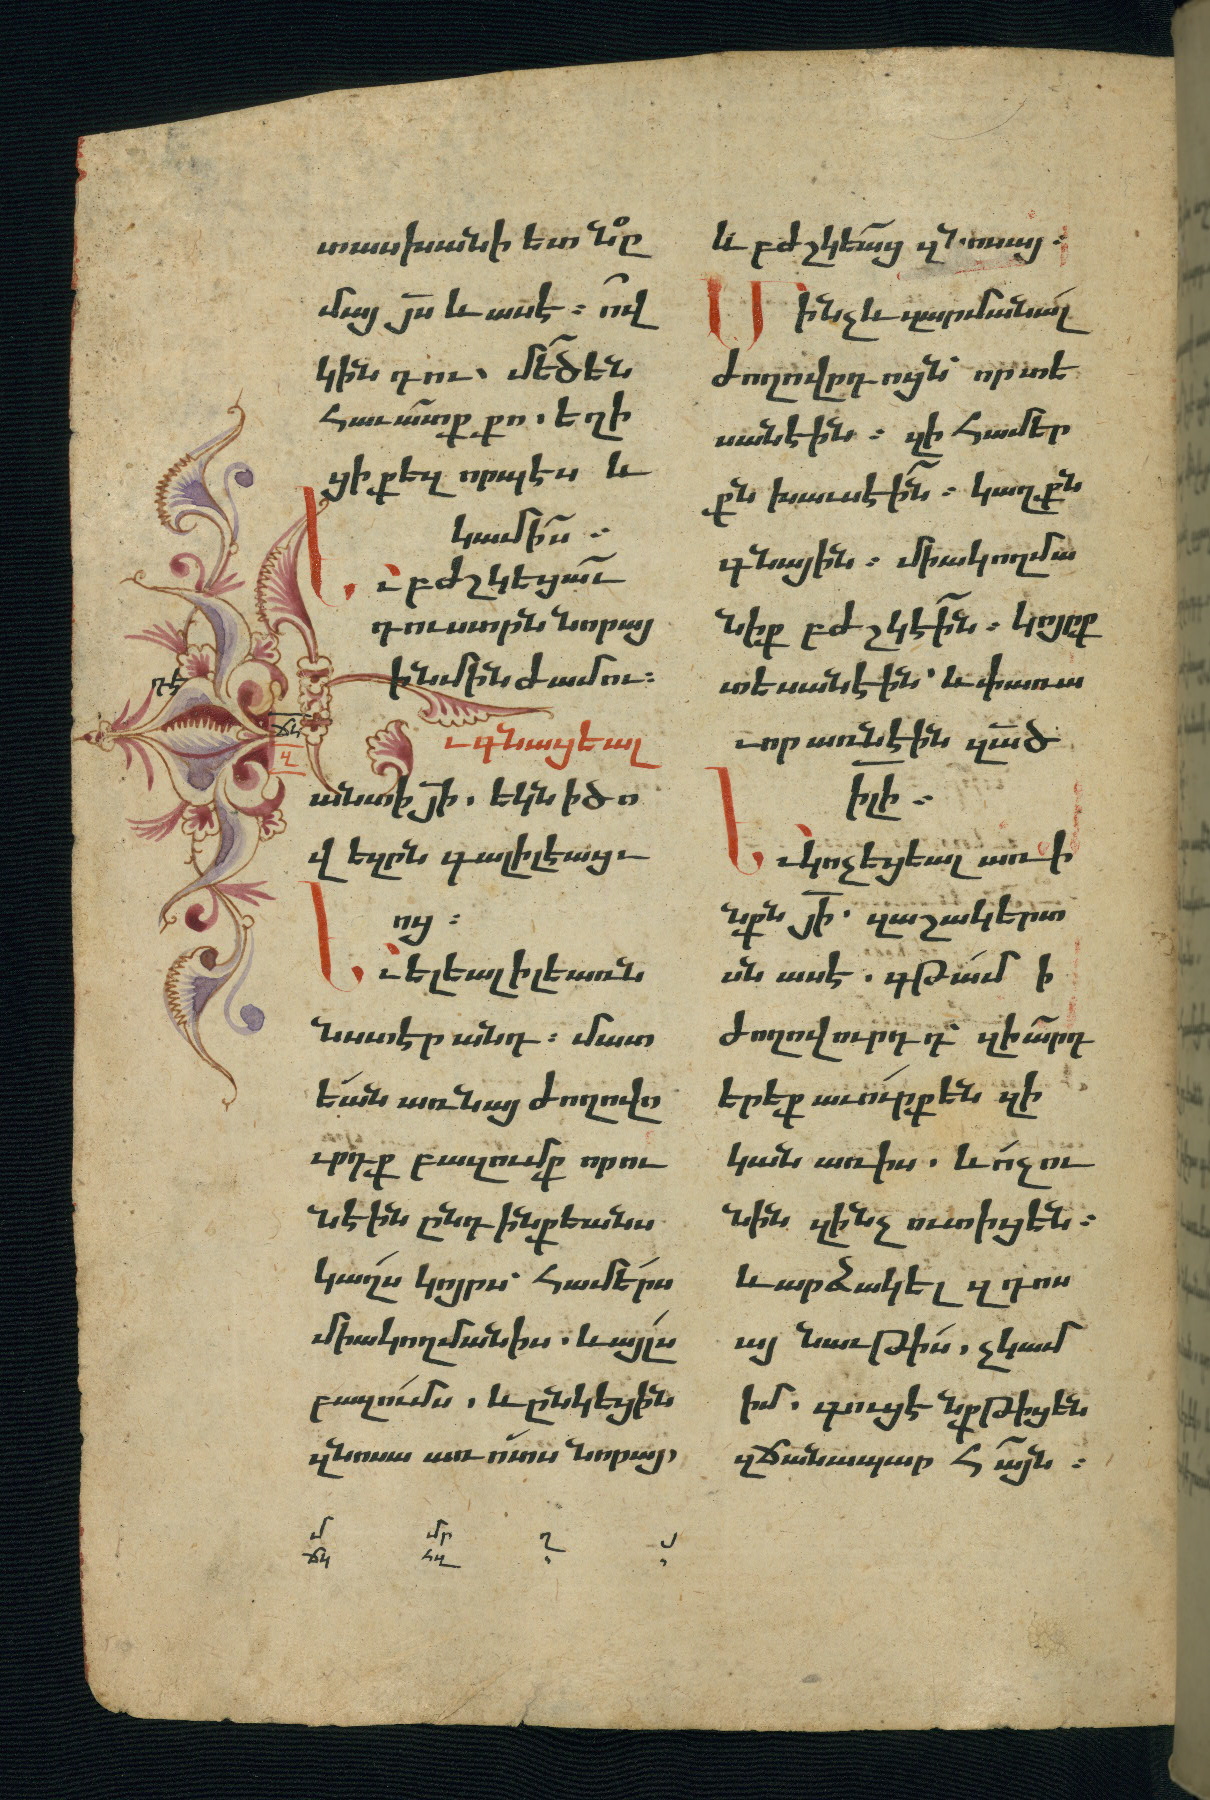 տասխանի ետ նոր
մայ յ̅ս և ասէ ։ ո՛վ
կին դու . մե՜ծ են
հաւատք քո . եղի
ցի քեզ որպէս և
կամիս ։
Եւ բժշկեցաւ
դուստրն նորայ
ի նմին ժամու ։
Եւ գնացեալ
անտի յ̅ի . եկն ի ծո
վ եզրն գալիլեացւ
ոց ։
Եւ ելեալ ի լեառն
նստէր անդ ։ մատ
եան առնայ ժողովո
ւրդք բազումք որու
նէին ընդ ինքեանս
կաղս կոյրս՝ համերս
միակողմանիս . և այլս
բազումս . և ընկեցին
զնոսա առ ոտս նորայ ,
և բժշկեաց զնոսայ ։
Մինչև զարմանալ
ժողովրդոցն՝ որ տե
սանէին ։ զի համեր
քն խաւսէին ։ կաղքն
գնային ։ միակողմա
նիք բժշկէին ։ կոյրք
տեսանէին՝ և փառա
ւոր առնէին զա̅ծ
ի̅լի ։
Եւ կոչեցեալ առ ի
նքն յ̅ի . զաշակերտ
սն ասէ . գթամ ի
ժողովուրդդ՝ զի արդ
երեք աւուրք են զի
կան առ իս . և ոչ ու
նին զինչ ուտիցեն ։
և արձակել զդոս
այ նաւթիս , չկամ
իմ . գուցէ նքթիցեն
զճանապար հայն ։